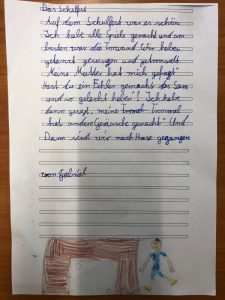 Das Schulfest
Auf dem Schulfest war es schön.
Ich habe alle Spiele gemacht und am
besten war die Torwand. Wir haben
getanzt gesungen und getrommelt.
Meine Mutter hat mich gefragt
hast du ein Fehler gemacht das Sam
und wo gelacht haben? Ich habe
dann gesagt, meine Trommel
hat andere Geräusche gemacht. Und
Dann sind wir nach Hause gegangen
von Gabriel